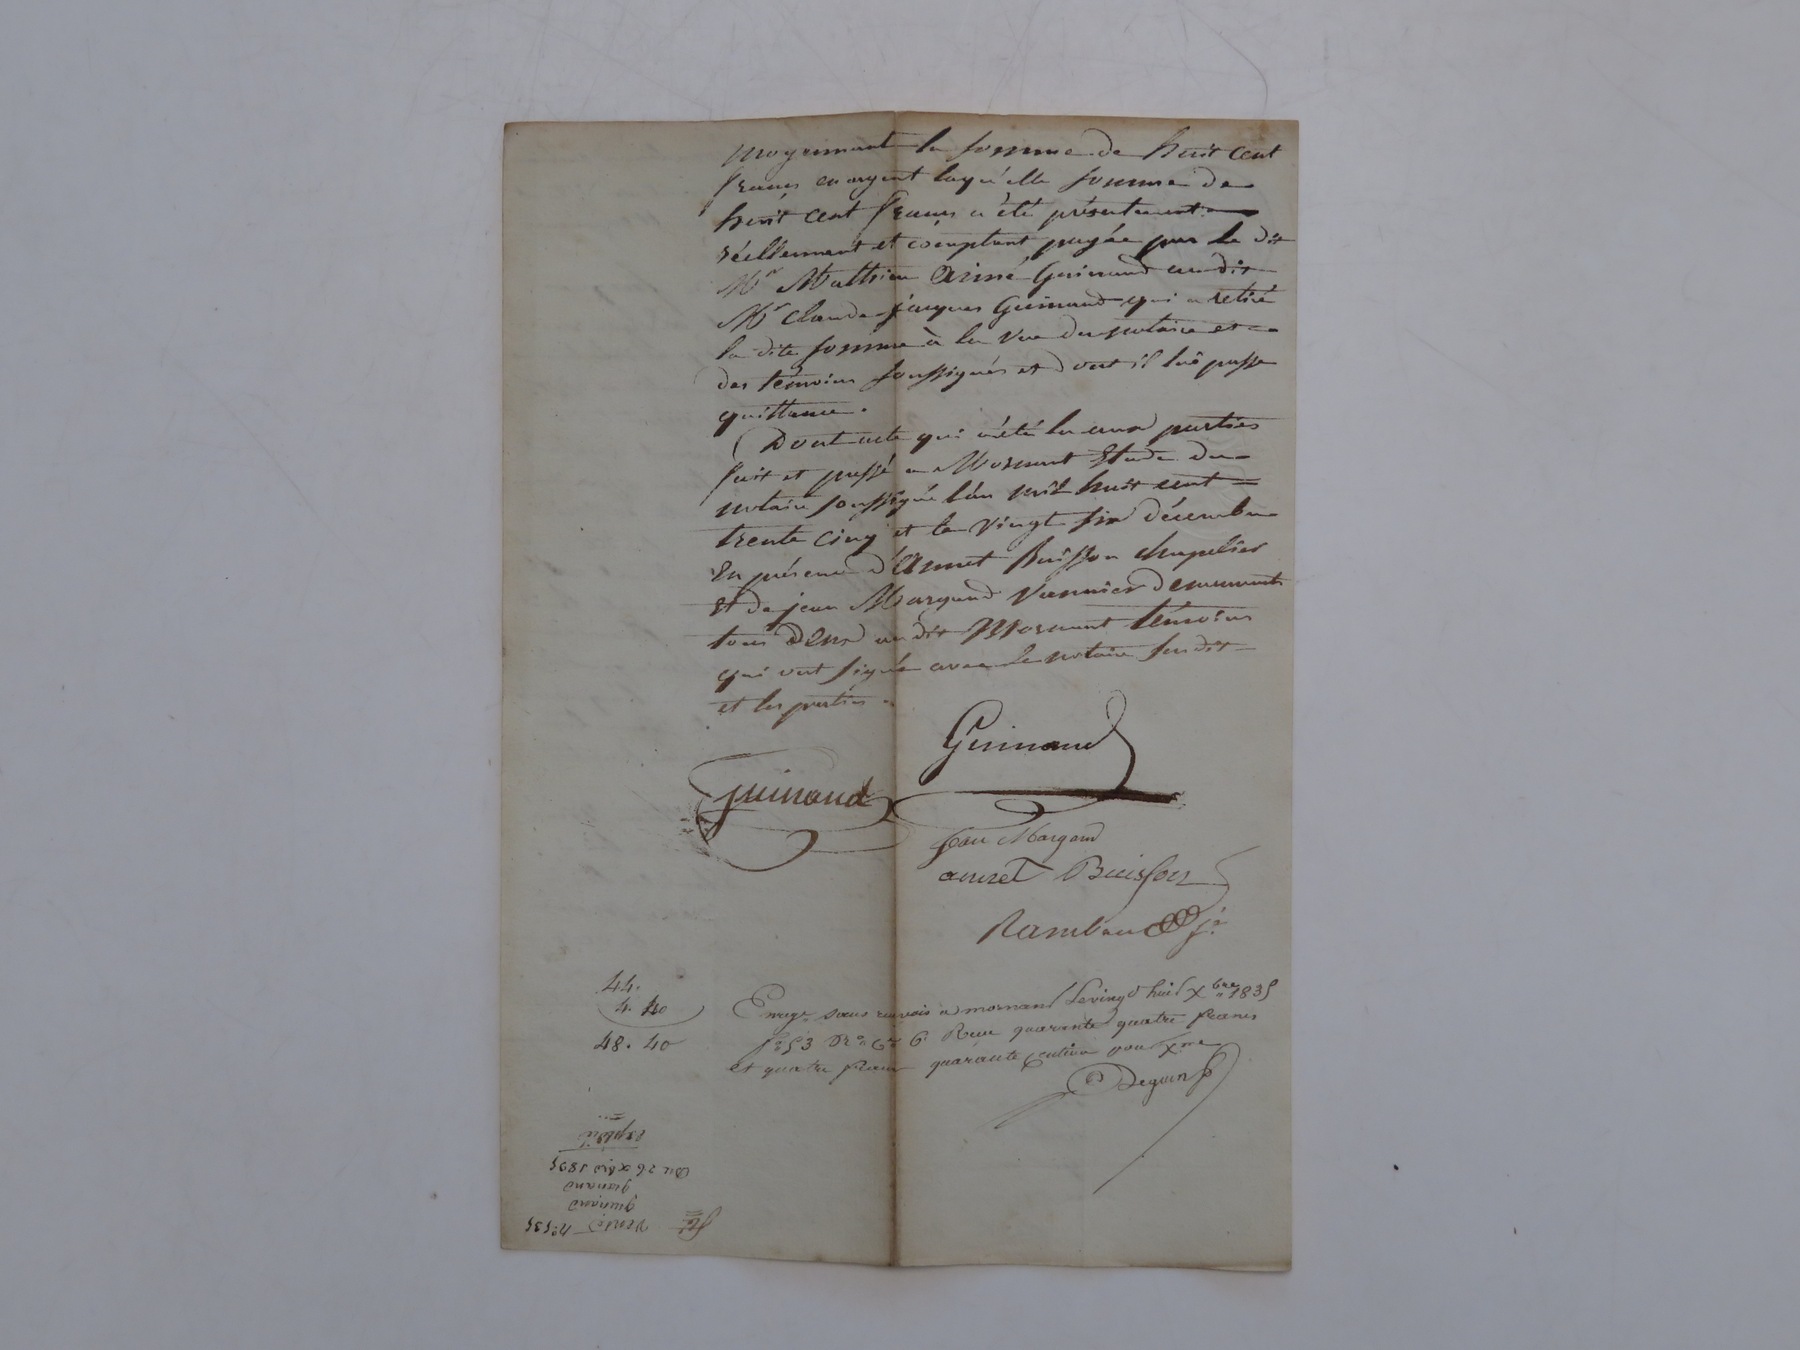 moyennant la somme de huit cent
francs en argent laquélle somme de
huit cent francs a été présentement
réellement et comptant payée par le dit
Mr Mathieu Aimé Guinand audit
Mr Claude jacques Guinand qui a retiré
la dite somme à la vue du notaire et
des témoins soussignés et dont il lui passe
quittance.
Dont acte qui a été lu aux parties
fait et passé a Mornant Etude du
notaire soussigné l'an mil huit cent =
trente cinq et le vingt six décembre
En présence d'Annet Buisson chapelier
et de jean Margand Vannier demeurants
tous deux au dit Mornant témoins
qui ont signé avec le notaire susdit
et les parties.
Guinand
Guinand
jean Margand
annet Buisson
Rambaud jne
44.
4. 40
48. 40
Enregé sous renvois a mornant Le vingt huit Xbre 1835
fo 53 Ro Ce 6. Reçu quarante quatre francs
et quatre francs quarante centimes pour Xme
Deguin
fet Vente no 535
guinand
guinand
Du 26 xbre 1835
expédié